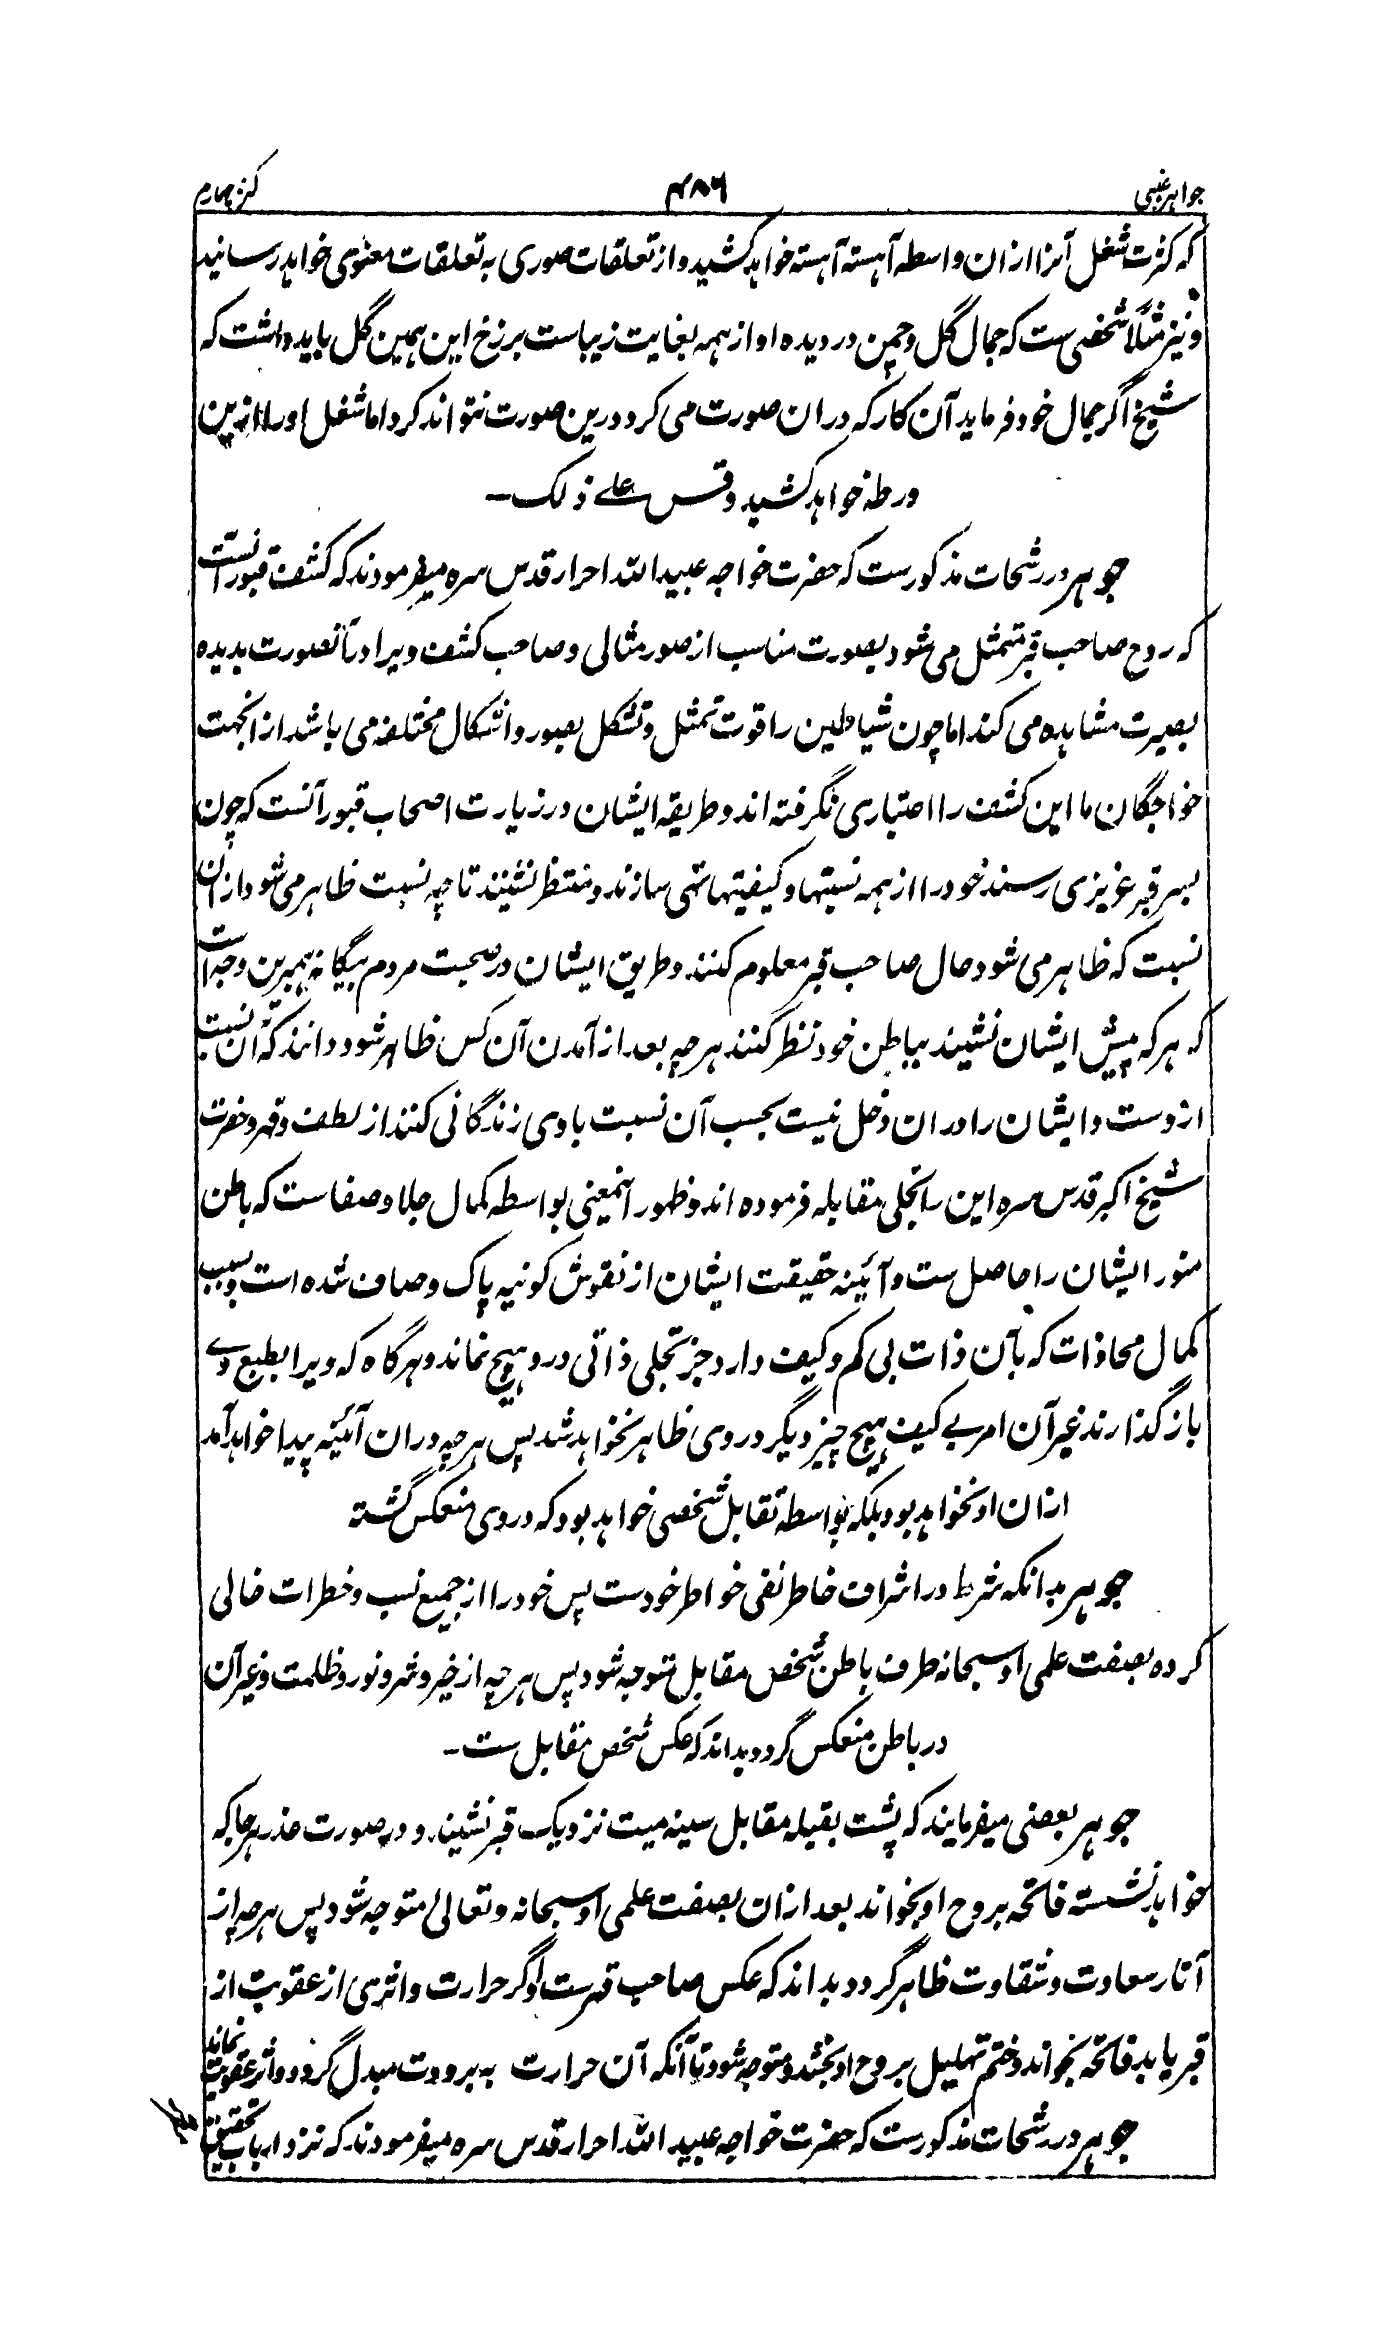 جواهر غیبی
۴۸۶
کنز چهارم
که کثرت شغل آنرا ازان واسطه آهسته آهسته خواهد کشید و از تعلقات صوری به تعلقات معنوی خواهد رسانید
و نیز مثلاً شخصی ست که جمال گل و چمن در دیده او از همه بغایت زیباست برزخ این همین گل باید داشت که
شیخ اگر جمال خود فرماید آن کار که دران صورت می کرد درین صورت نتواند کرد اما شغل او را ازین
ورطه خواهد کشید وقس علے ذلک ـ
جوهر در رشحات مذکورست که حضرت خواجه عبید الله احرار قدس سره میفرمودند که کشف قبور آنست
که روح صاحب قبر متمثل می شود بصورت مناسب از صور مثالی و صاحب کشف ویرا درآنصورت بدیده
بصیرت مشاهده می کند اما چون شیاطین را قوت تمثل و تشکل بصور و اشکال مختلفه می باشد ازانجهت
خواجگان ما این کشف را اعتباری نگرفته اند و طریقه ایشان در زیارت اصحاب قبور آنست که چون
بسر قبر عزیزی رسند خود را از همه نسبتها و کیفیتها تهی سازند و منتظر نشینند تا چه نسبت ظاهر می شود ازان
نسبت که ظاهر می شود حال صاحب قبر معلوم کنند و طریق ایشان در صحبت مردم بیگانه بهمبرین وجه است
که هر که پیش ایشان نشیند بباطن خود نظر کنند هر چه بعد از آمدن آن کس ظاهر شود دانند که آن نسبت
ازوست و ایشان را دران دخل نیست بحسب آن نسبت با وی زندگانی کنند از لطف و قهر و حضرت
شیخ اکبر قدس سره این را تجلی مقابله فرموده اند و ظهور اینمعنی بواسطه کمال جلا و صفاست که باطن
منور ایشان را حاصل ست و آئینه حقیقت ایشان از نقوش کونیه پاک و صاف شده است و بسبب
کمال محاذات که بآن ذات بی کم و کیف دارد جز تجلی ذاتی درو هیچ نماند و هرگاه که ویرا بطبع وے
باز گذارند غیر آن امر بے کیف هیچ چیز دیگر در وی ظاهر نخواهد شد پس هر چه دران آئینه پیدا خواهد آمد
ازان او نخواهد بود بلکه بواسطه تقابل شخصی خواهد بود که در وی منعکس گشته
جوهر بدانکه شرط در اشراف خاطر نفی خواطر خودست پس خود را از جمیع نسب و خطرات خالی
کرده بصفت علمی او سبحانه طرف باطن شخص مقابل متوجه شود پس هر چه از خیر و شر و نور و ظلمت و غیر آن
در باطن منعکس گردد بداند که عکس شخص مقابل ست ـ
جوهر بعضی میفرمایند که پشت بقبله مقابل سینه میت نزدیک قبر نشیند و در صورت عذر هر جا که
خواهد نشسته فاتحه بروح او بخواند بعد ازان بصفت علمی او سبحانه و تعالی متوجه شود پس هر چه از
آثار سعادت و شقاوت ظاهر گردد بداند که عکس صاحب قبرست و اگر حرارت و اثری از عقوبت از
قبر یابد فاتحه بخواند و ختم تهلیل بروح او بخشد و متوجه شود تا آنکه آن حرارت به برودت مبدل گردد و اثر عقوبت نماند
جوهر در رشحات مذکورست که حضرت خواجه عبید الله احرار قدس سره میفرمودند که نزد ارباب تحقیق